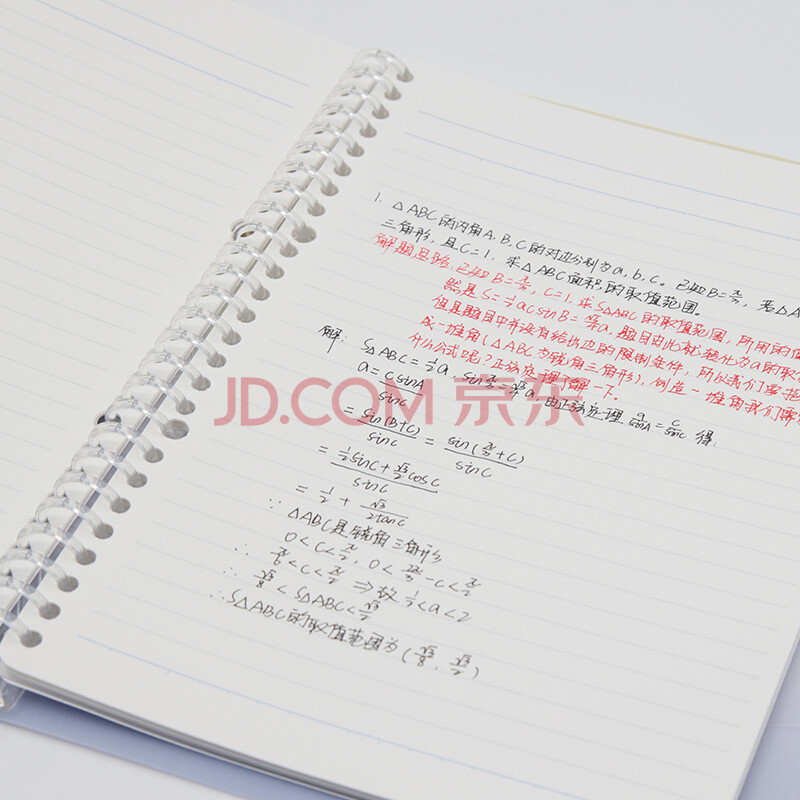 1. △ABC的内角A,B,C的对边分别为a,b,c。已知B=π/3,若△A
三角形,且C=1,求△ABC面积的取值范围。
解题思路,已知B=π/3,C=1,求S△ABC的取值范围,所用的
然是S=½acsinB=√3/4a,题目因此就转化为a的取
但是题目中并没有给出边的限制条件,所以我们需把
成一堆角(△ABC为锐角三角形),创造一堆角我们需
什么公式呢?正弦定理了解一下。
解: S△ABC=½a sinπ/3=√3/4a,由正弦定理a/sinA=c/sinC得:
a=csinA/sinC
=sin(B+C)/sinC=sin(π/3+C)/sinC
=(½sinC+√3/2cosC)/sinC
=1/2+√3/2tanC
∵ △ABC是锐角三角形
0<C<π/2,0<2π/3-C<π/2
∴ π/6<C<π/2⇒故½<a<2
∴ √3/8<S△ABC<√3/2
∴S△ABC的取值范围为(√3/8,√3/2)
JD.COM 京东